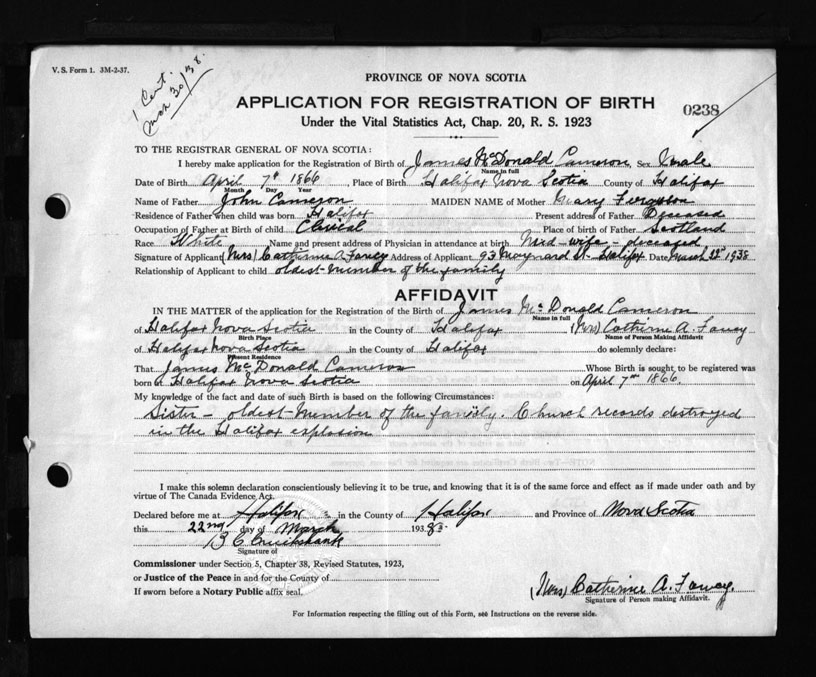 V. S. Form 1. 3M-2-37.
1 Cert.
Mch 30/38.
PROVINCE OF NOVA SCOTIA
APPLICATION FOR REGISTRATION OF BIRTH
0238
Under the Vital Statistics Act, Chap. 20, R. S. 1923
TO THE REGISTRAR GENERAL OF NOVA SCOTIA:
I hereby make application for the Registration of Birth of James McDonald Cameron, Sex Male
Name in full
Date of Birth April 7th 1866, Place of Birth Halifax Nova Scotia County of Halifax
Month Day Year
Name of Father John Cameron MAIDEN NAME of Mother Mary Ferguson
Residence of Father when child was born Halifax Present address of Father Diseased
Occupation of Father at Birth of child Clerical Place of birth of Father Scotland
Race White Name and present address of Physician in attendance at birth Mid-wife - deceased
Signature of Applicant (Mrs) Catherine A. Fancy Address of Applicant 93 Maynard St. Halifax Date March 22nd 1938
Relationship of Applicant to child oldest member of the family
AFFIDAVIT
IN THE MATTER of the application for the Registration of the Birth of James McDonald Cameron
Name in full
of Halifax Nova Scotia in the County of Halifax I (Mrs) Catherine A. Fancy
Birth Place Name of Person Making Affidavit
of Halifax Nova Scotia in the County of Halifax do solemnly declare:
Present Residence
That James McDonald Cameron Whose Birth is sought to be registered was
born at Halifax Nova Scotia on April 7th 1866
My knowledge of the fact and date of such Birth is based on the following Circumstances:
Sister - oldest member of the family. Church records destroyed
in the Halifax explosion
I make this solemn declaration conscientiously believing it to be true, and knowing that it is of the same force and effect as if made under oath and by
virtue of The Canada Evidence Act.
Declared before me at Halifax in the County of Halifax and Province of Nova Scotia
this 22nd day of March 1938
Cruikshank
Signature of
Commissioner under Section 5, Chapter 38, Revised Statutes, 1923,
or Justice of the Peace in and for the County of
If sworn before a Notary Public affix seal.
(Mrs) Catherine A. Fancy.
Signature of Person making Affidavit.
For Information respecting the filling out of this Form, see Instructions on the reverse side.